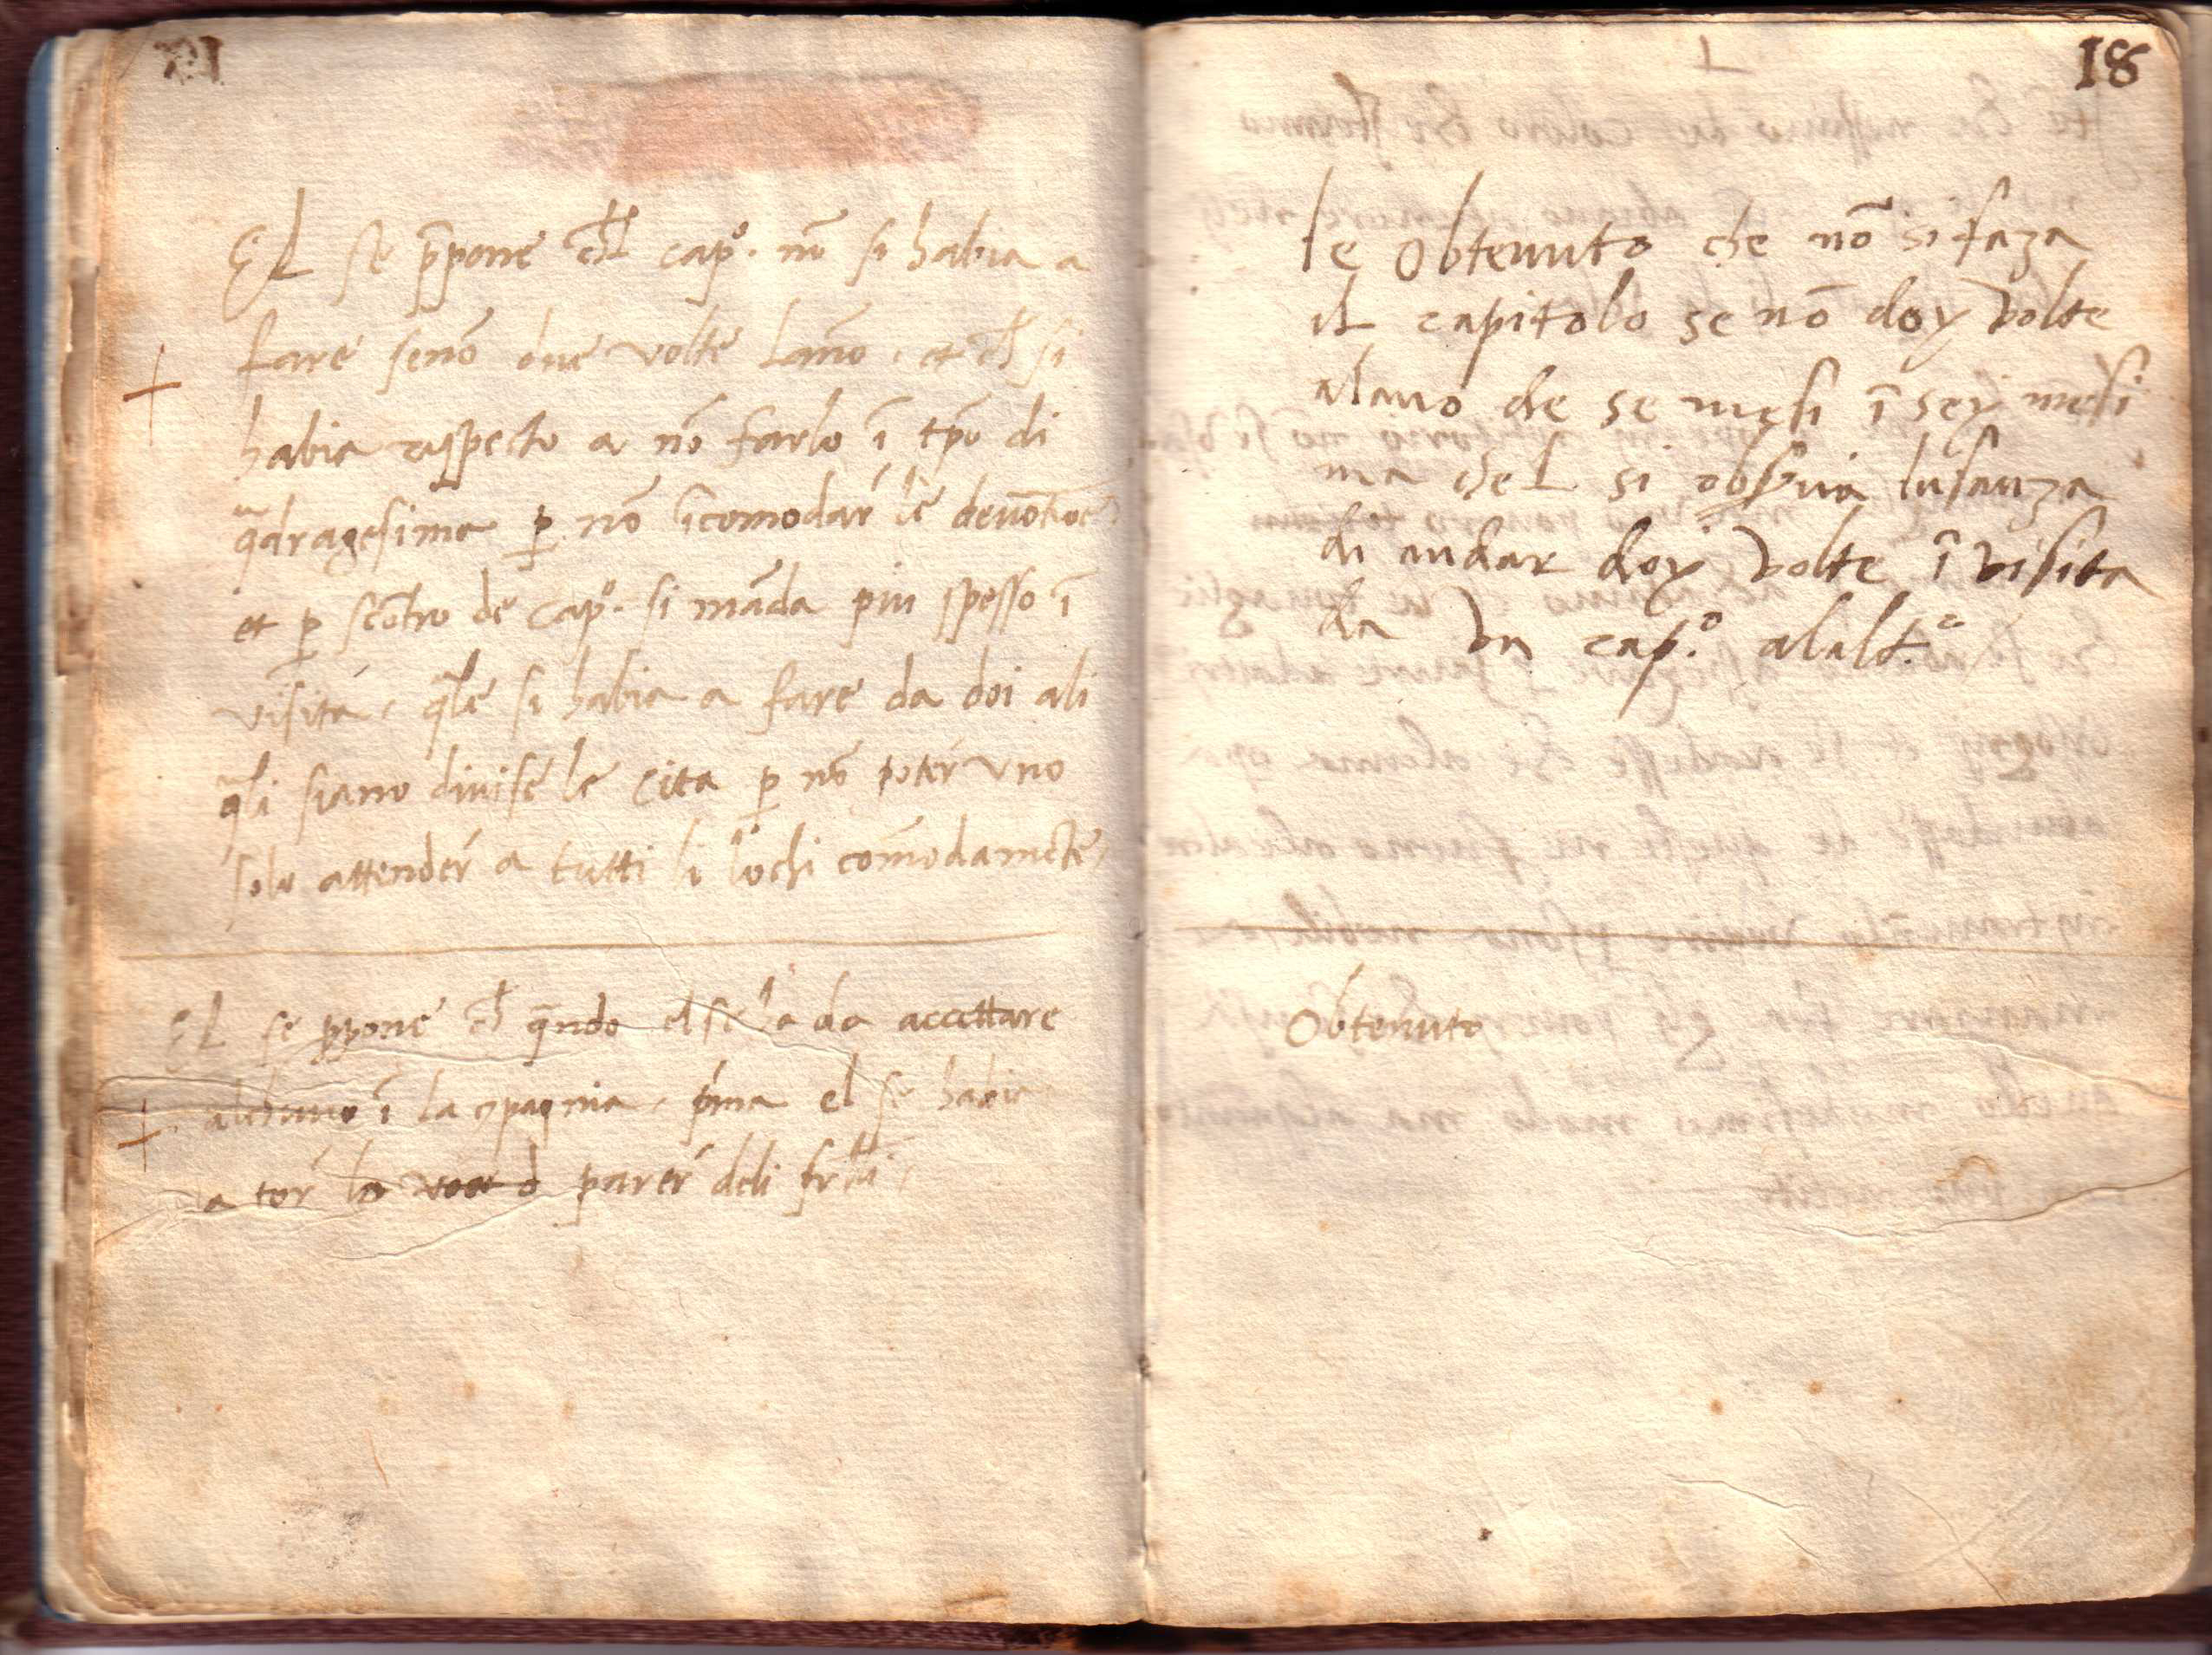 EL se p̄pone ch̄L cap.º nō si habia a
fare senō due volte Lano, et ch̄ si
habia respecto a nō farlo ī tp̄o di
q̄dragesima p nō īcomodar le
et p scōtro de cap.º si māda piu spesso ī
visita, q̄le si habia a fare da doi ali
q̄li siano divise le cita p nō poter uno
solo attender a tutti li lochi comōdamēte,
EL se ppone ch̄ q̄ndo el se ha da accettare
alchuno ī La cpagnia, pima el se habia
a tor parer deli frlli,
18
se obtenuto che nō si faza
iL capitolo se nō doy volte
alano che se mesi ī sey mesi
ma cheL si lusanza
di andar doy volte ī visita
da un cap.º alalt.º
Obtenuto